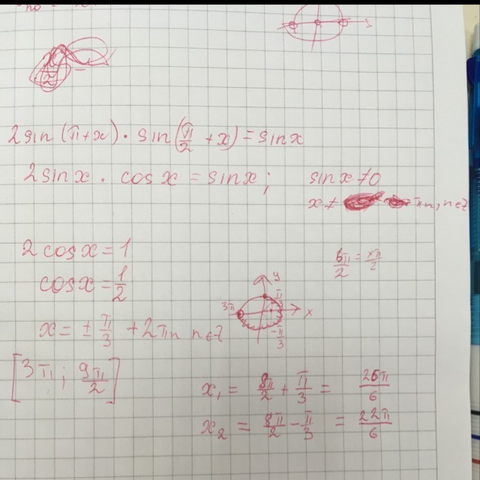 2sin(π+x)·sin(π/2+x)=sinx
2sinx·cosx=sinx; sinx≠0
x≠ πn, n∈Z
2cosx=1
cosx=1/2
x=±π/3+2πn n∈Z
[3π; 9π/2]
y
3π x
-π/3
x₁=8π/2+π/3=26π/6
x₂=8π/2-π/3=22π/6